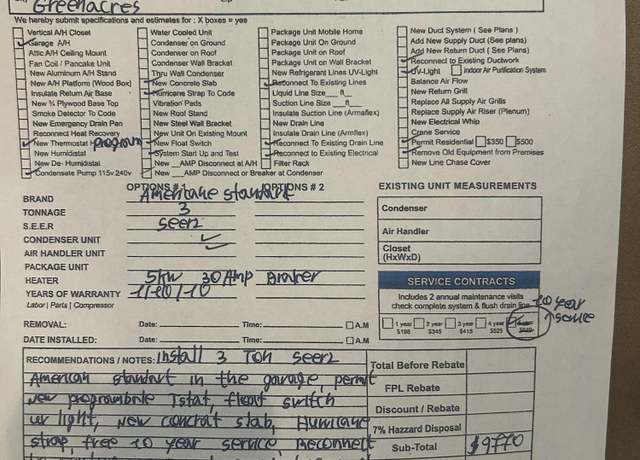 Greenacres
We hereby submit specifications and estimates for : X boxes = yes
Vertical A/H Closet
Garage A/H
Attic A/H Ceiling Mount
Fan Coil / Pancake Unit
New Aluminum A/H Stand
New A/H Platform (Wood Box)
Insulate Return Air Base
New ¾ Plywood Base Top
Smoke Detector To Code
New Emergency Drain Pan
Reconnect Heat Recovery
New Thermostat program
New Humidistat
New De- Humidistat
Condensate Pump 115v 240v
Water Cooled Unit
Condenser on Ground
Condenser on Roof
Condenser Wall Bracket
Thru Wall Condenser
New Concrete Slab
Hurricane Strap To Code
Vibration Pads
New Roof Stand
New Steel Wall Bracket
New Unit On Existing Mount
New Float Switch
System Start Up and Test
New ___AMP Disconnect at A/H
New ___AMP Disconnect or Breaker at Condenser
Package Unit Mobile Home
Package Unit On Ground
Package Unit on Roof
Package Unit on Wall Bracket
New Refrigerant Lines UV-Light
Reconnect To Existing Lines
Liquid Line Size___ ft__
Suction Line Size ___ft__
Insulate Suction Line (Armaflex)
New Drain Line
Insulate Drain Line (Armflex)
Reconnect To Existing Drain Line
Reconnect to Existing Electrical
Filter Rack
New Duct System ( See Plans )
Add New Supply Duct (See plans)
Add New Return Duct ( See Plans)
Reconnect to Existing Ductwork
UV-Light Indoor Air Purification System
Balance Air Flow
New Return Grill
Replace All Supply Air Grills
Replace Supply Air Riser (Plenum)
New Electrical Whip
Crane Service
Permit Residential $350 $500
Remove Old Equipment from Premises
New Line Chase Cover
OPTIONS # 1 OPTIONS # 2
BRAND American standart
TONNAGE 3
S.E.E.R seer2
CONDENSER UNIT
AIR HANDLER UNIT
PACKAGE UNIT
HEATER 5KW 30 Amp Braker
YEARS OF WARRANTY 1/10/10
Labor | Parts | Compressor
EXISTING UNIT MEASUREMENTS
Condenser
Air Handler
Closet
(HxWxD)
SERVICE CONTRACTS
Includes 2 annual maintenance visits
check complete system & flush drain line
10 year
service
1 year 2 year 3 year 4 year
$198 $345 $415 $525
REMOVAL: Date: Time: A.M
DATE INSTALLED: Date: Time: A.M
RECOMMENDATIONS / NOTES: install 3 Ton seer2
American standart in the garage, permit
new programbnle Tstat, float switch
uv light, new concrat slab, Hurricane
strap, free 10 year service, Reconnect
Total Before Rebate
FPL Rebate
Discount / Rebate
7% Hazzard Disposal
Sub-Total $9770